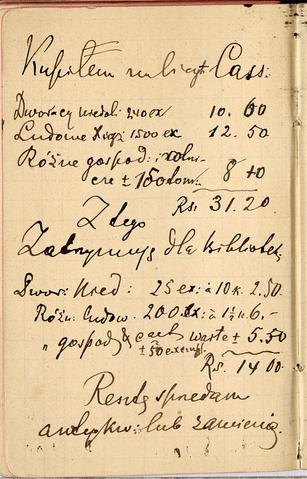 Kupiłem na licyt Cass:
Dworacy 240 ex 10. 60
Ludowe 1500 ex 12. 50
Różne gospod: i roln-
cze ± 150 tom: 8 10
Rs. 31. 20
Z tego
Zatrzymuję dla bibliotek.
Dwor: 25 ex: à 10 k. 2.50.
Różn: ludow. 200 ex: à 6.-
" gospod waste ± 5.50
± 50 exempl.
Rs. 14 00
Resztę sprzedam
antykw: lub zamienię.